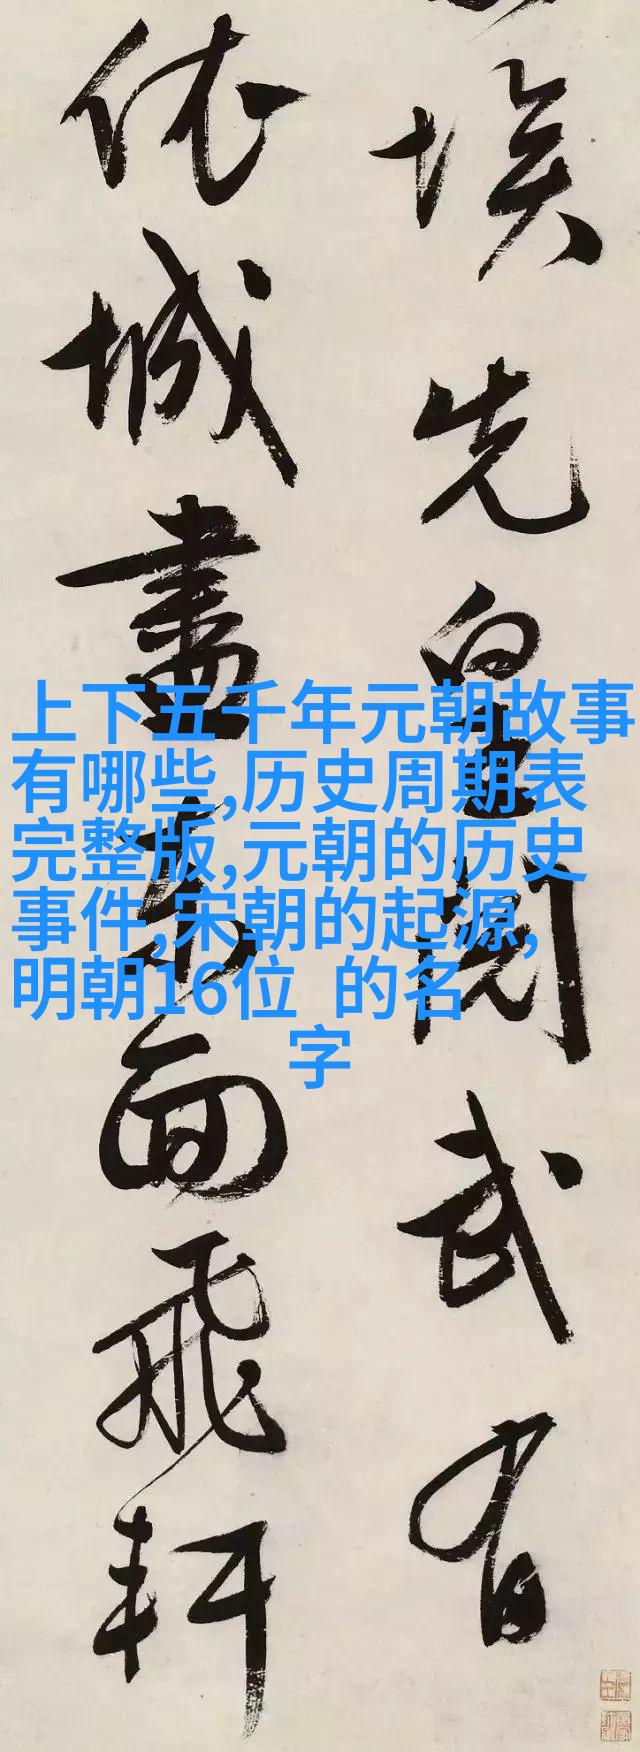 埃先皇閱武有
依城盡東面飛軒
上下五千年元朝故事
有哪些,历史周期表
完整版,元朝的历史
事件,宋朝的起源,
明朝16位 的名
字